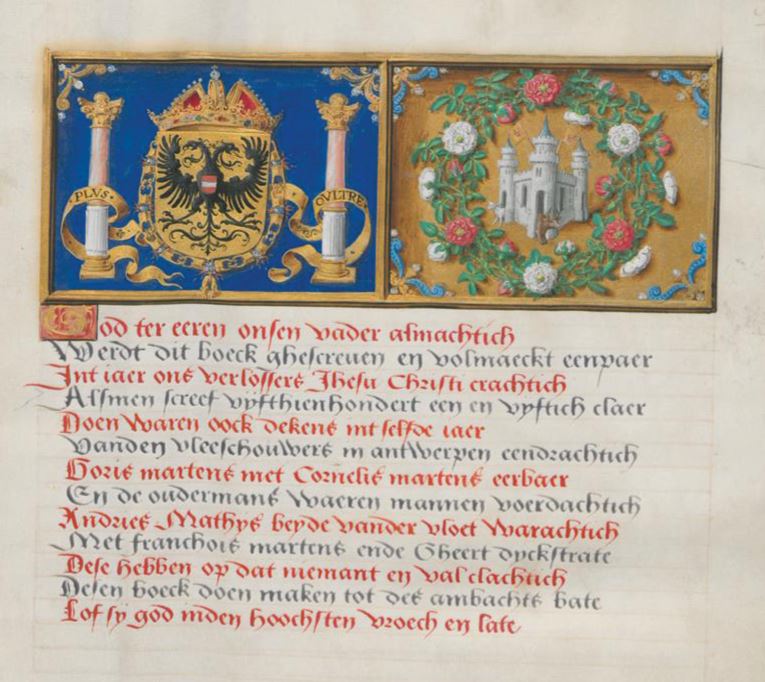 PLVS· OVLTRE·
God ter eeren onsen vader almachtich
Werdt dit boeck ghescreuen en volmaeckt eenpaer
Int iaer ons verlossers Jhesu Christi crachtich
Alsmen screef vyfthienhondert een en vyftich claer
Doen waren oock dekens int selfde iaer
Vanden vleeschouwers in antwerpen eendrachtich
Goris martens met Cornelis martens eerbaer
En de oudermans waeren mannen voerdachtich
Andries Mathys beyde vander vloet warachtich
Met franchois martens ende Gheert dyckstrate
Dese hebben op dat niemant en val clachtich
Desen boeck doen maken tot des ambachts bate
Lof sy god inden hoochsten vroech en late